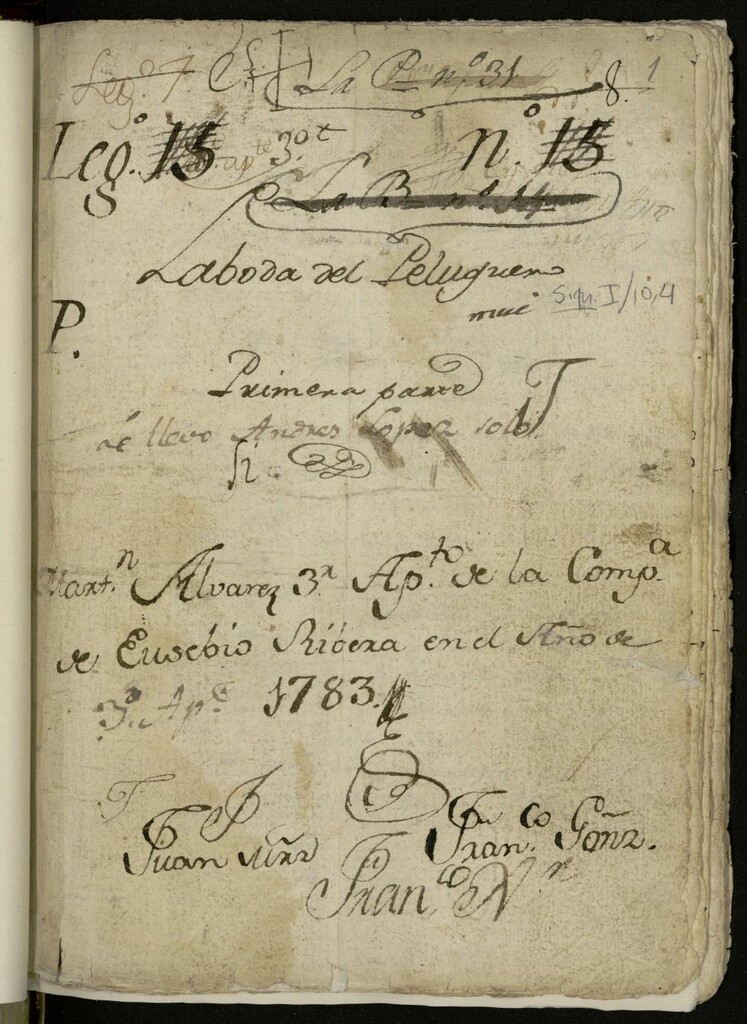 Leg.º 7 La P n.º 31 8. 1
Leg.º 15 ap.te 3.º n.º 15
La B n.º 14
La boda del Peluquero
Sig. I/10,4
P.
Primera parte
Se llevo Andres Lopez solo
Mart.n Alvarez 3.r Ap.to de la Comp.a
de Eusebio Ribera en el Año de
3.º Ap.te 1783
Juan
Fran.co Goñz.
Fran.co